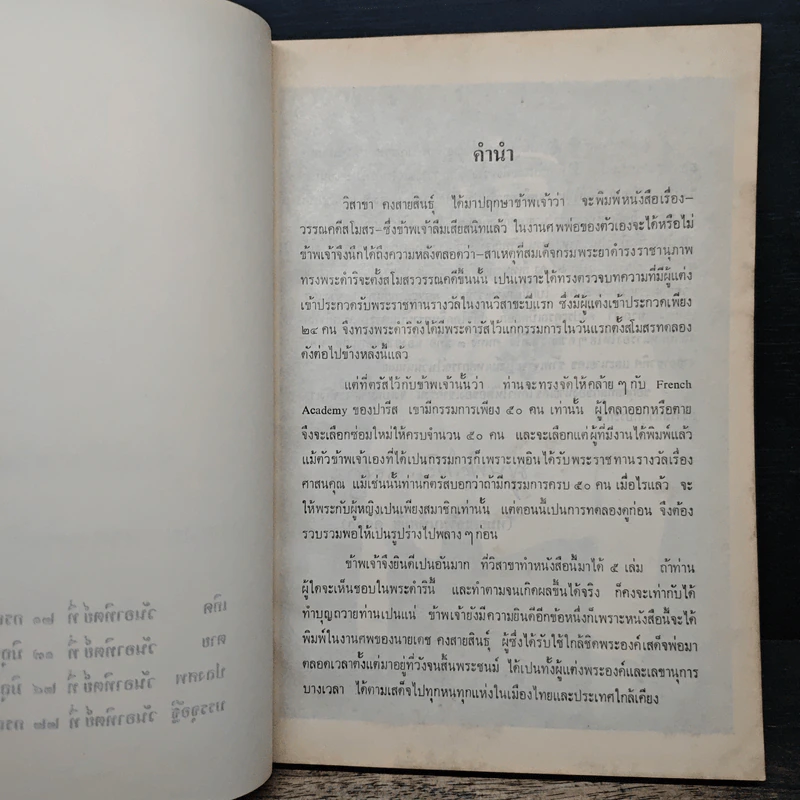 คำนำ
วิสาขา คงสายสินธุ์ ได้มาปฤกษาข้าพเจ้าว่า จะพิมพ์หนังสือเรื่อง-
วรรณคดีสโมสร-ซึ่งข้าพเจ้าลืมเสียสนิทแล้ว ในงานศพพ่อของตัวเองจะได้หรือไม่
ข้าพเจ้าจึงนึกได้ถึงความหลังตลอดว่า-สาเหตุที่สมเด็จกรมพระยาดำรงราชานุภาพ
ทรงพระดำริจะตั้งสโมสรวรรณคดีขึ้นนั้น เป็นเพราะได้ทรงตรวจบทความที่มีผู้แต่ง
เข้าประกวดรับพระราชทานรางวัลในงานวิสาขะปีแรก ซึ่งมีผู้แต่งเข้าประกวดเพียง
๒๔ คน จึงทรงพระดำริดังได้มีพระดำรัสไว้แก่กรรมการในวันแรกตั้งสโมสรทดลอง
ดังต่อไปข้างหลังนี้แล้ว
แต่ที่ตรัสไว้กับข้าพเจ้านั้นว่า ท่านจะทรงจัดให้คล้าย ๆ กับ French
Academy ของปารีส เขามีกรรมการเพียง ๕๐ คน เท่านั้น ผู้ใดลาออกหรือตาย
จึงจะเลือกซ่อมใหม่ให้ครบจำนวน ๕๐ คน และจะเลือกแต่ผู้ที่มีงานได้พิมพ์แล้ว
แม้ตัวข้าพเจ้าเองที่ได้เป็นกรรมการก็เพราะเผอิญได้รับพระราชทานรางวัลเรื่อง
ศาสนคุณ แม้เช่นนั้นท่านก็ตรัสบอกว่าถ้ามีกรรมการครบ ๕๐ คน เมื่อไรแล้ว จะ
ให้พระกับผู้หญิงเป็นเพียงสมาชิกเท่านั้น แต่ตอนนี้เป็นการทดลองดูก่อน จึงต้อง
รวบรวมพอให้เป็นรูปร่างไปพลาง ๆ ก่อน
ข้าพเจ้าจึงยินดีเป็นอันมาก ที่วิสาขาทำหนังสือนี้มาได้ ๕ เล่ม ถ้าท่าน
ผู้ใดจะเห็นชอบในพระดำรินี้ และทำตามจนเกิดผลขึ้นได้จริง ก็คงจะเท่ากับได้
ทำบุญถวายท่านเป็นแน่ ข้าพเจ้ายังมีความยินดีอีกข้อหนึ่งก็เพราะหนังสือนี้จะได้
พิมพ์ในงานศพของนายเดช คงสายสินธุ์ ผู้ซึ่งได้รับใช้ใกล้ชิดพระองค์เสด็จพ่อมา
ตลอดเวลาตั้งแต่มาอยู่ที่วังจนสิ้นพระชนม์ ได้เป็นทั้งผู้แต่งพระองค์และเลขานุการ
บางเวลา ได้ตามเสด็จไปทุกหนทุกแห่งในเมืองไทยและประเทศใกล้เคียง